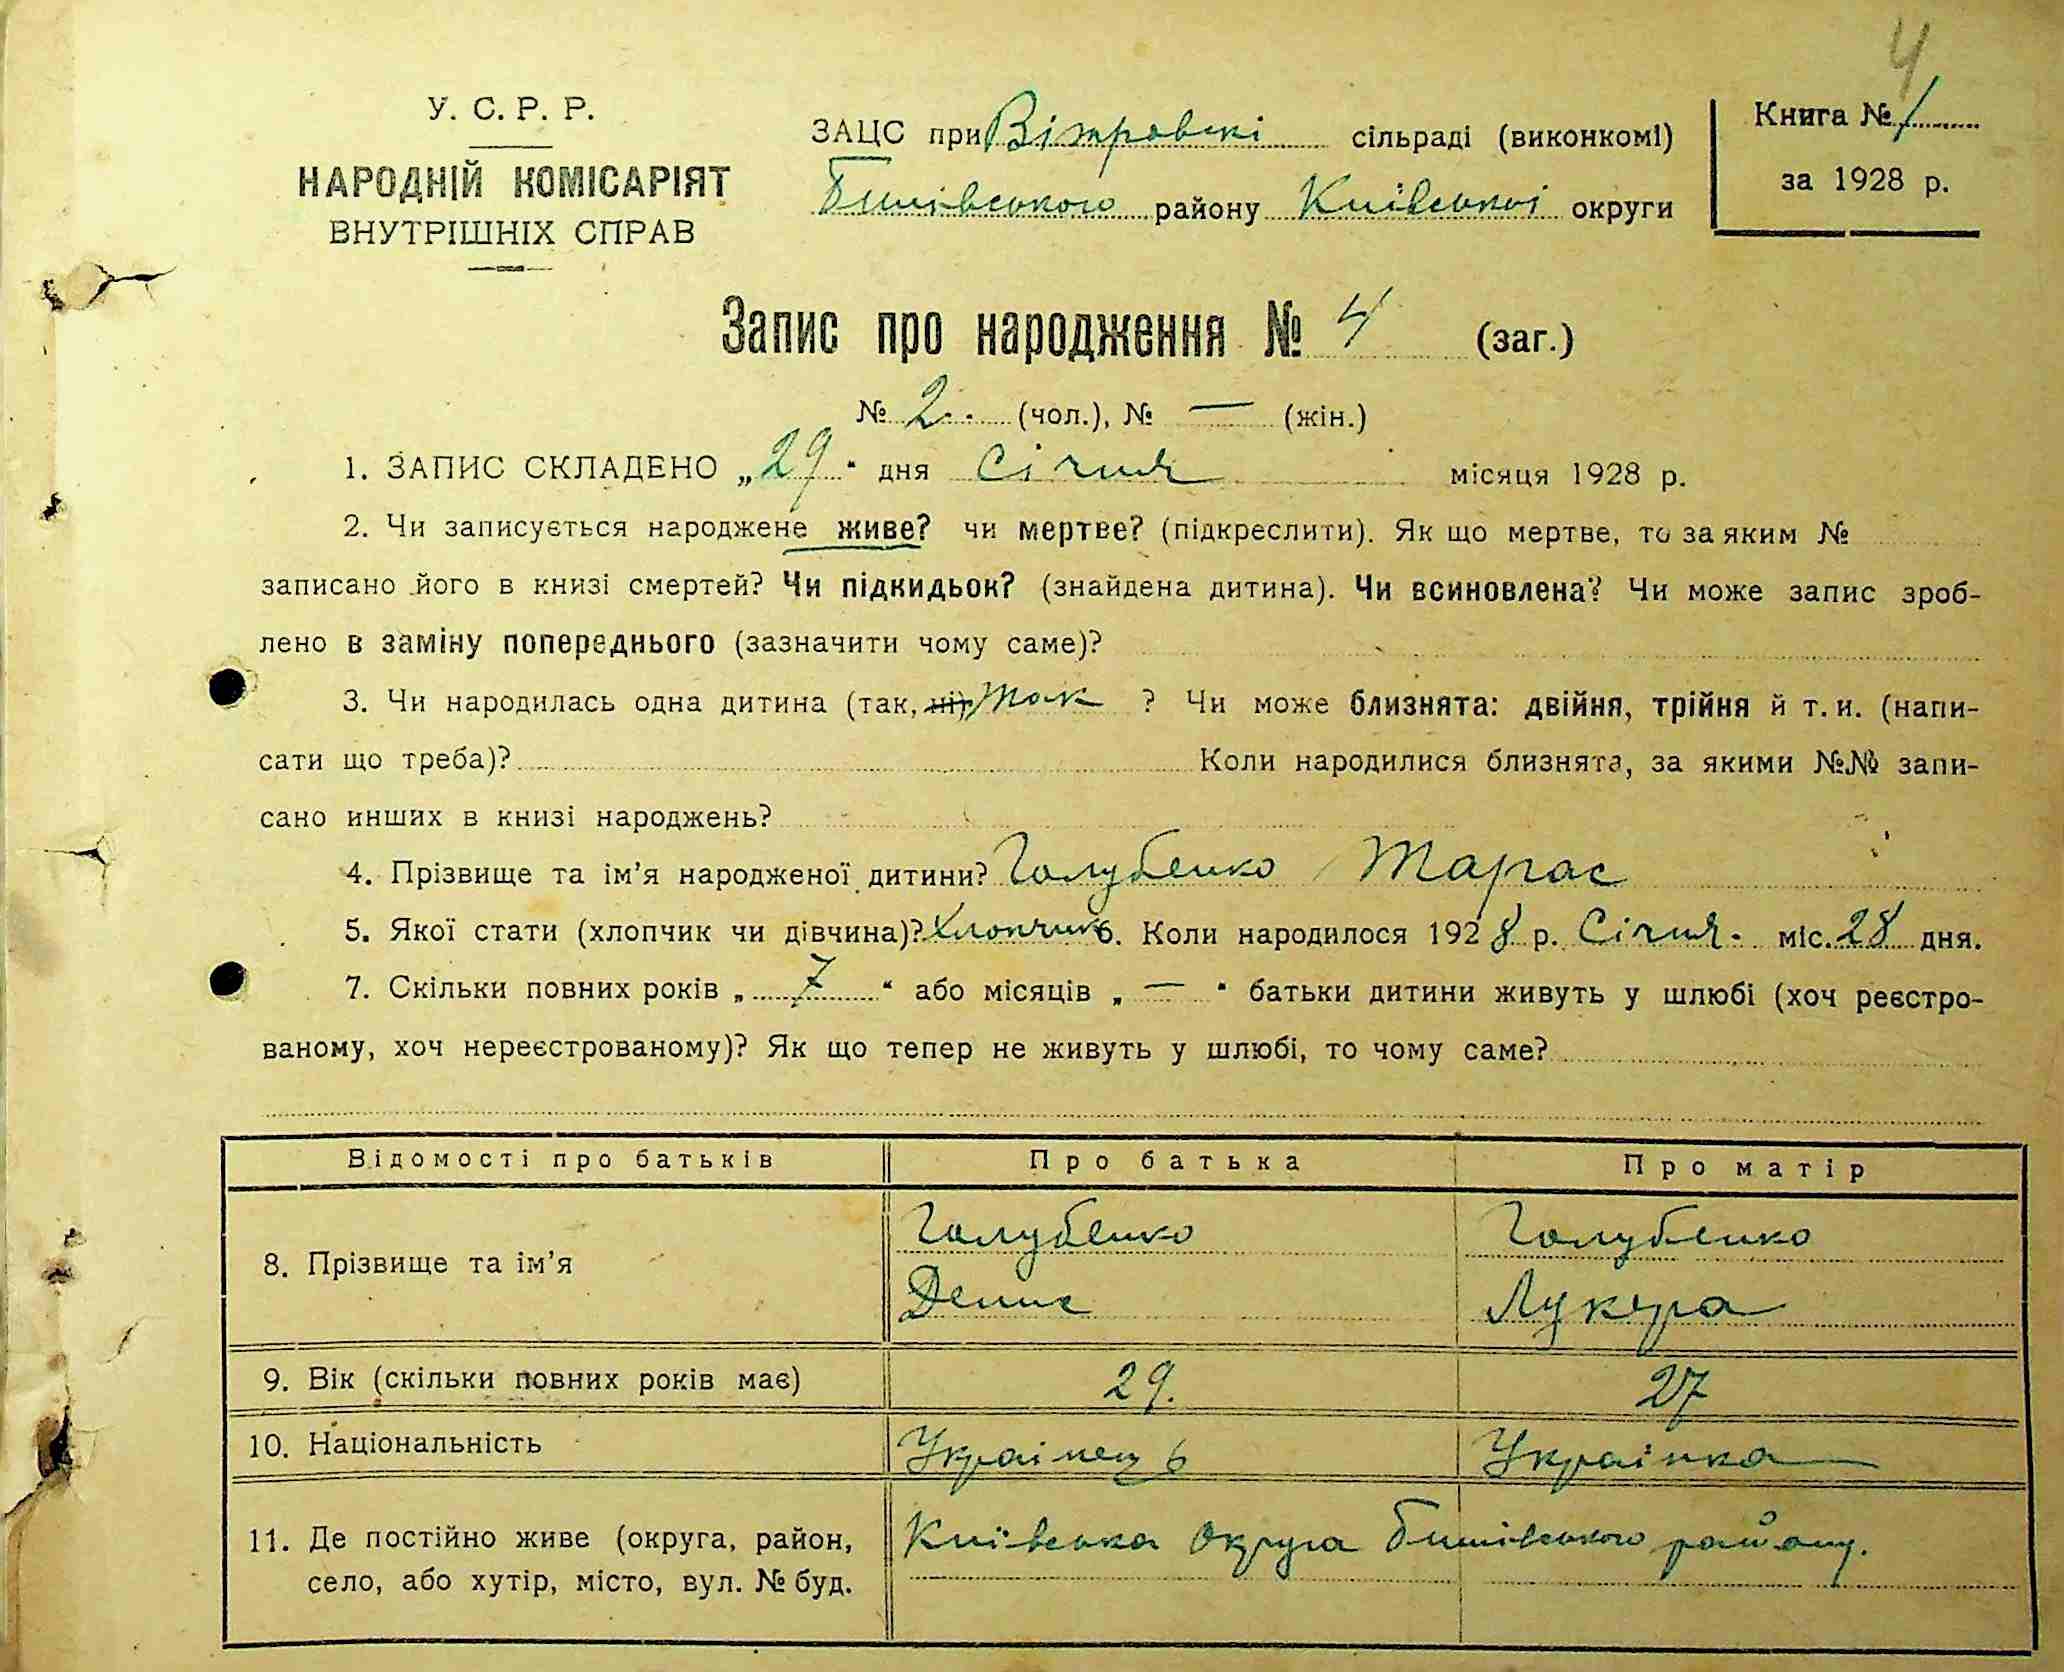 4
У. С. Р. Р.
НАРОДНІЙ КОМІСАРІЯТ
ВНУТРІШНІХ СПРАВ
ЗАЦС при Вітровскі сільраді (виконкомі)
Бишівського району Київської округи
Книга № 1
за 1928 р.
Запис про народження № 4 (заг.)
№ 2 (чол.), № — (жін.)
1. ЗАПИС СКЛАДЕНО „29“ дня Січня місяця 1928 р.
2. Чи записується народжене живе? чи мертве? (підкреслити). Як що мертве, то за яким №
записано його в книзі смертей? Чи підкидьок? (знайдена дитина). Чи всиновлена? Чи може запис зроб-
лено в заміну попереднього (зазначити чому саме)?
3. Чи народилась одна дитина (так, ні) Так ? Чи може близнята: двійня, трійня й т. и. (напи-
сати що треба)? Коли народилися близнята, за якими №№ запи-
сано инших в книзі народжень?
4. Прізвище та ім’я народженої дитини? Голубенко Тарас
5. Якої стати (хлопчик чи дівчина)? Хлопчик 6. Коли народилося 1928 р. Січня міс. 28 дня.
7. Скільки повних років „ 7 “ або місяців „ — “ батьки дитини живуть у шлюбі (хоч реєстро-
ваному, хоч нереєстрованому)? Як що тепер не живуть у шлюбі, то чому саме?
Відомості про батьків Про батька Про матір
8. Прізвище та ім’я Голубенко Голубенко
Денис Лукера
9. Вік (скільки повних років має) 29. 27
10. Національність Украінець Украінка
11. Де постійно живе (округа, район, Київська округа Бишівського району.
село, або хутір, місто, вул. № буд.